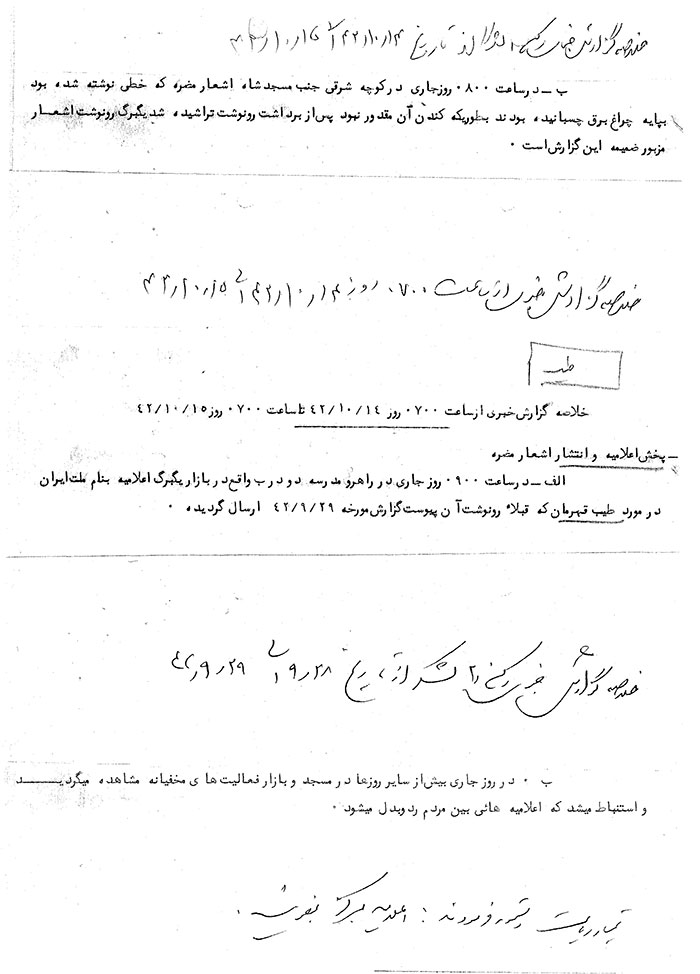 خلاصه گزارش خبری رکن ۲ لشکر از تاریخ ۴۲/۱۰/۱۴ تا ۴۲/۱۰/۱۵
ب ــ در ساعت ۰۸۰۰ روزجاری در کوچه شرقی جنب مسجد شاه اشعار مضره که خطی نوشته شده بود
بپایه چراغ برق چسبانیده بودند بطوریکه کندن آن مقدور نبود پس از برداشت رونوشت تراشیده شد یکبرگ رونوشت اشعار
مزبور ضمیمه این گزارش است ۰
خلاصه گزارش خبری از ساعت ۰۷۰۰ روز ۴۲/۱۰/۱۴ تا ۴۲/۱۰/۱۵
طیب
خلاصه گزارش خبری از ساعت ۰۷۰۰ روز ۴۲/۱۰/۱۴ تا ساعت ۰۷۰۰ روز ۴۲/۱۰/۱۵
ــ پخش اعلامیه و انتشار اشعار مضره
الف ــ در ساعت ۰۹۰۰ روز جاری در راهرو مدرسه دو درب واقع در بازار یکبرگ اعلامیه بنام ملت ایران
در مورد طیب قهرمان که قبلا" رونوشت آن پیوست گزارش مورخه ۴۲/۹/۲۹ ارسال گردیده ۰
خلاصه گزارش خبری رکن ۲ لشکر از تاریخ ۹/۲۸ تا ۴۲/۹/۲۹
ب ۰ در روز جاری بیش از سایر روزها در مسجد و بازار فعالیت های مخفیانه مشاهده میگردیـــد
و استنباط میشد که اعلامیه هائی بین مردم رد و بدل میشود ۰
تیمسار ریاست فرمودند : اعلامیه